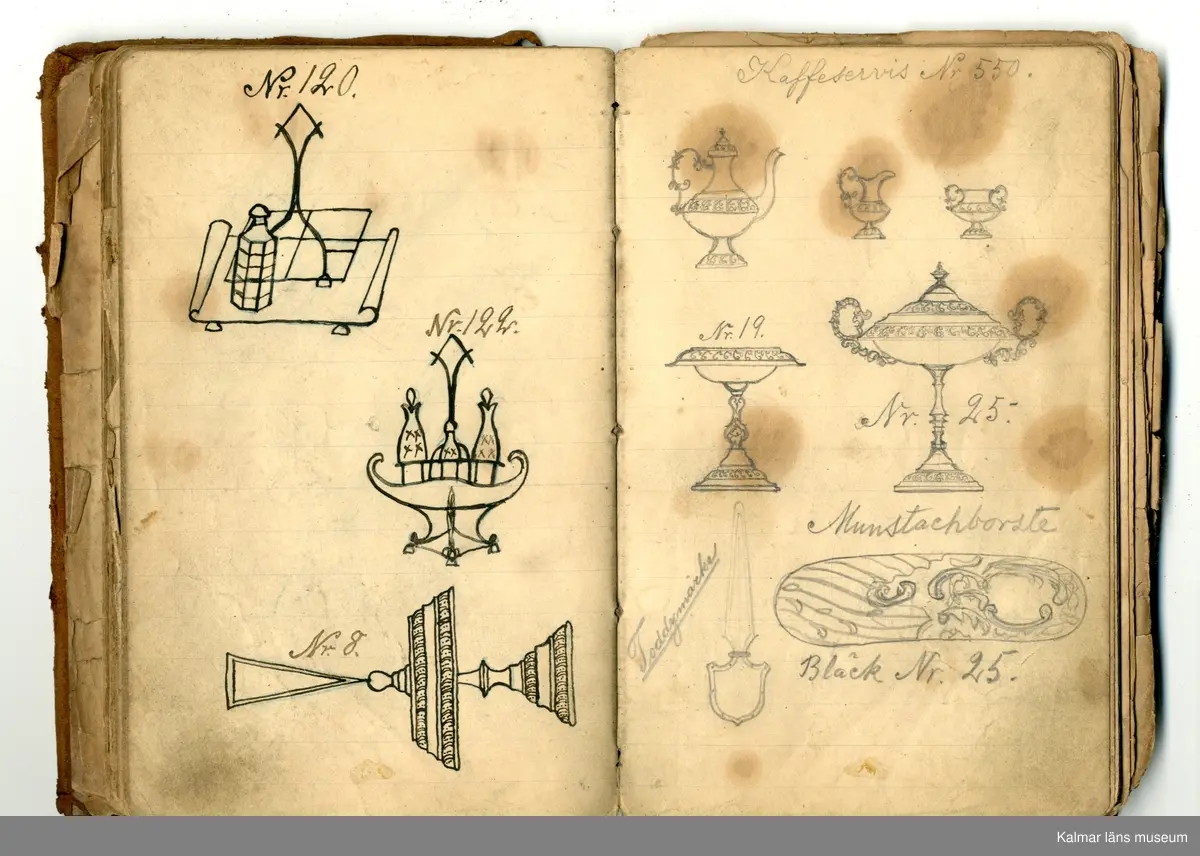 Nr. 120.
Nr. 122.
Nr. 8.
Kaffeservis Nr 550.
Nr. 19.
Nr. 25.
Munstachborste
Toddymärke
Bläck Nr. 25.
Kalmar läns museum